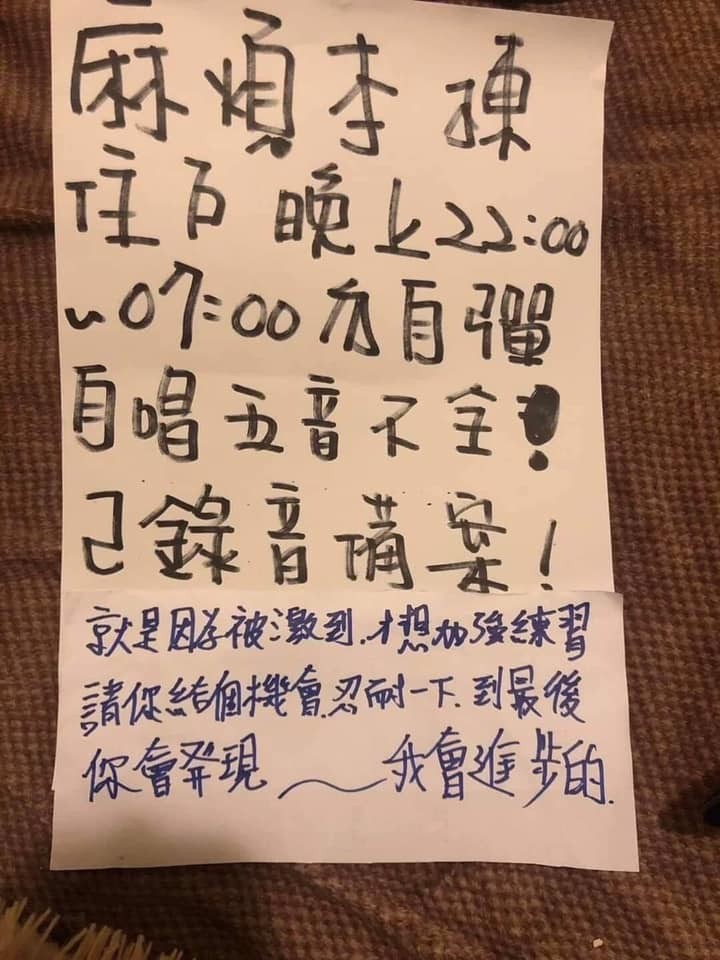 麻煩李 陳
住戶 晚上22:00
~07:00 勿自彈
自唱 五音不全！
已錄音備案！
就是因為被激到.才想加強練習
請你給個機會.忍耐一下.到最後
你會發現～我會進步的.